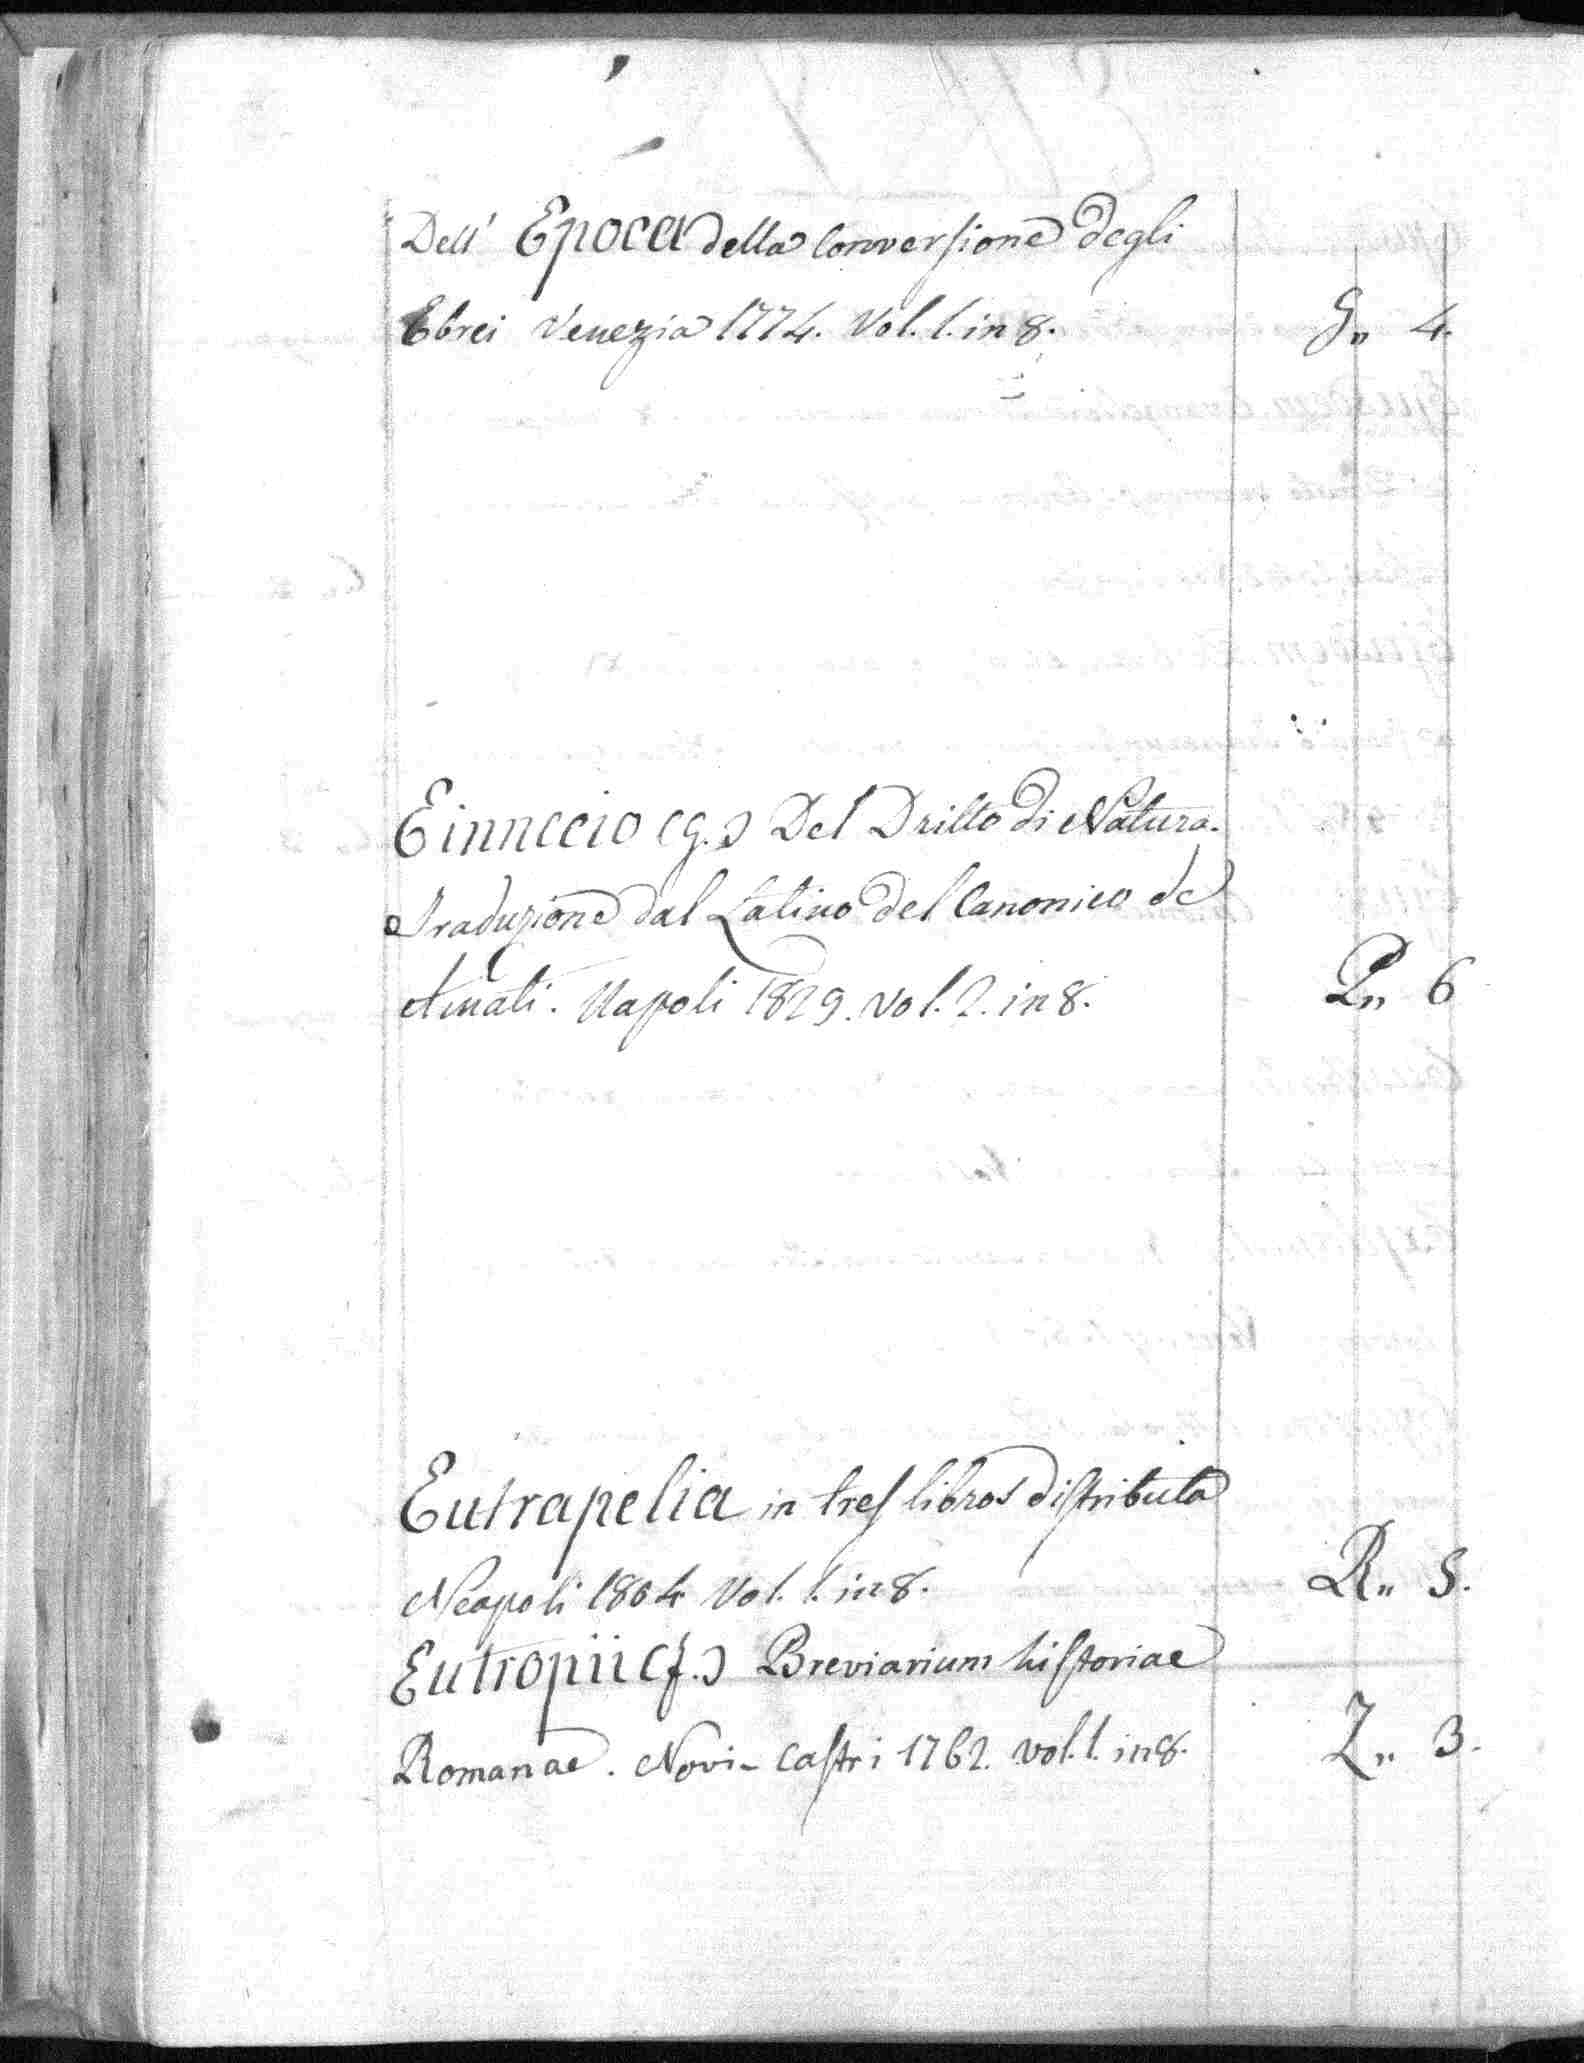 Dell' Epoca della Conversione degli
Ebrei Venezia 1774. Vol. 1. in 8. G„ 4.
Einnccio (G.) Del Dritto di Natura.
Traduzione dal Latino del Canonico de
Amati. Napoli 1829. vol. 2. in 8. P„ 6
Eutrapelia in tres libros distributa
Neapoli 1864 Vol. 1. in 8. R„ 5.
Eutropii (f.) Breviarium historiae
Romanae. Novi-Castri 1762. vol. 1. in 8. Z„ 3.